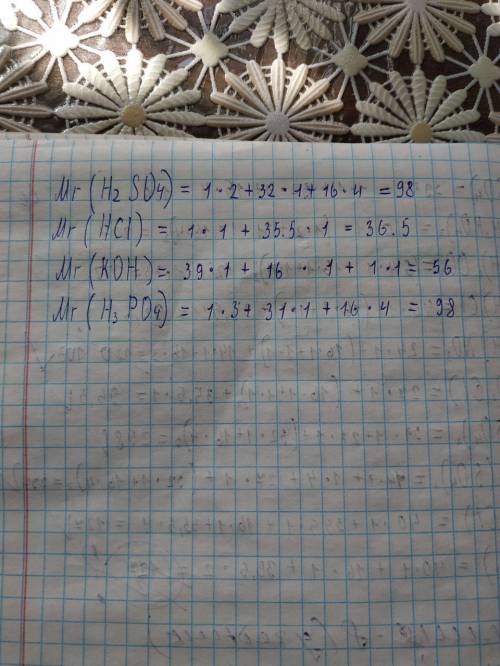 Mr (H₂SO₄) = 1·2+32·1+16·4 = 98
Mr (HCl) = 1·1 + 35.5·1 = 36.5
Mr (KOH) = 39·1 + 16·1 + 1·1 = 56
Mr (H₃PO₄) = 1·3+31·1+16·4 = 98